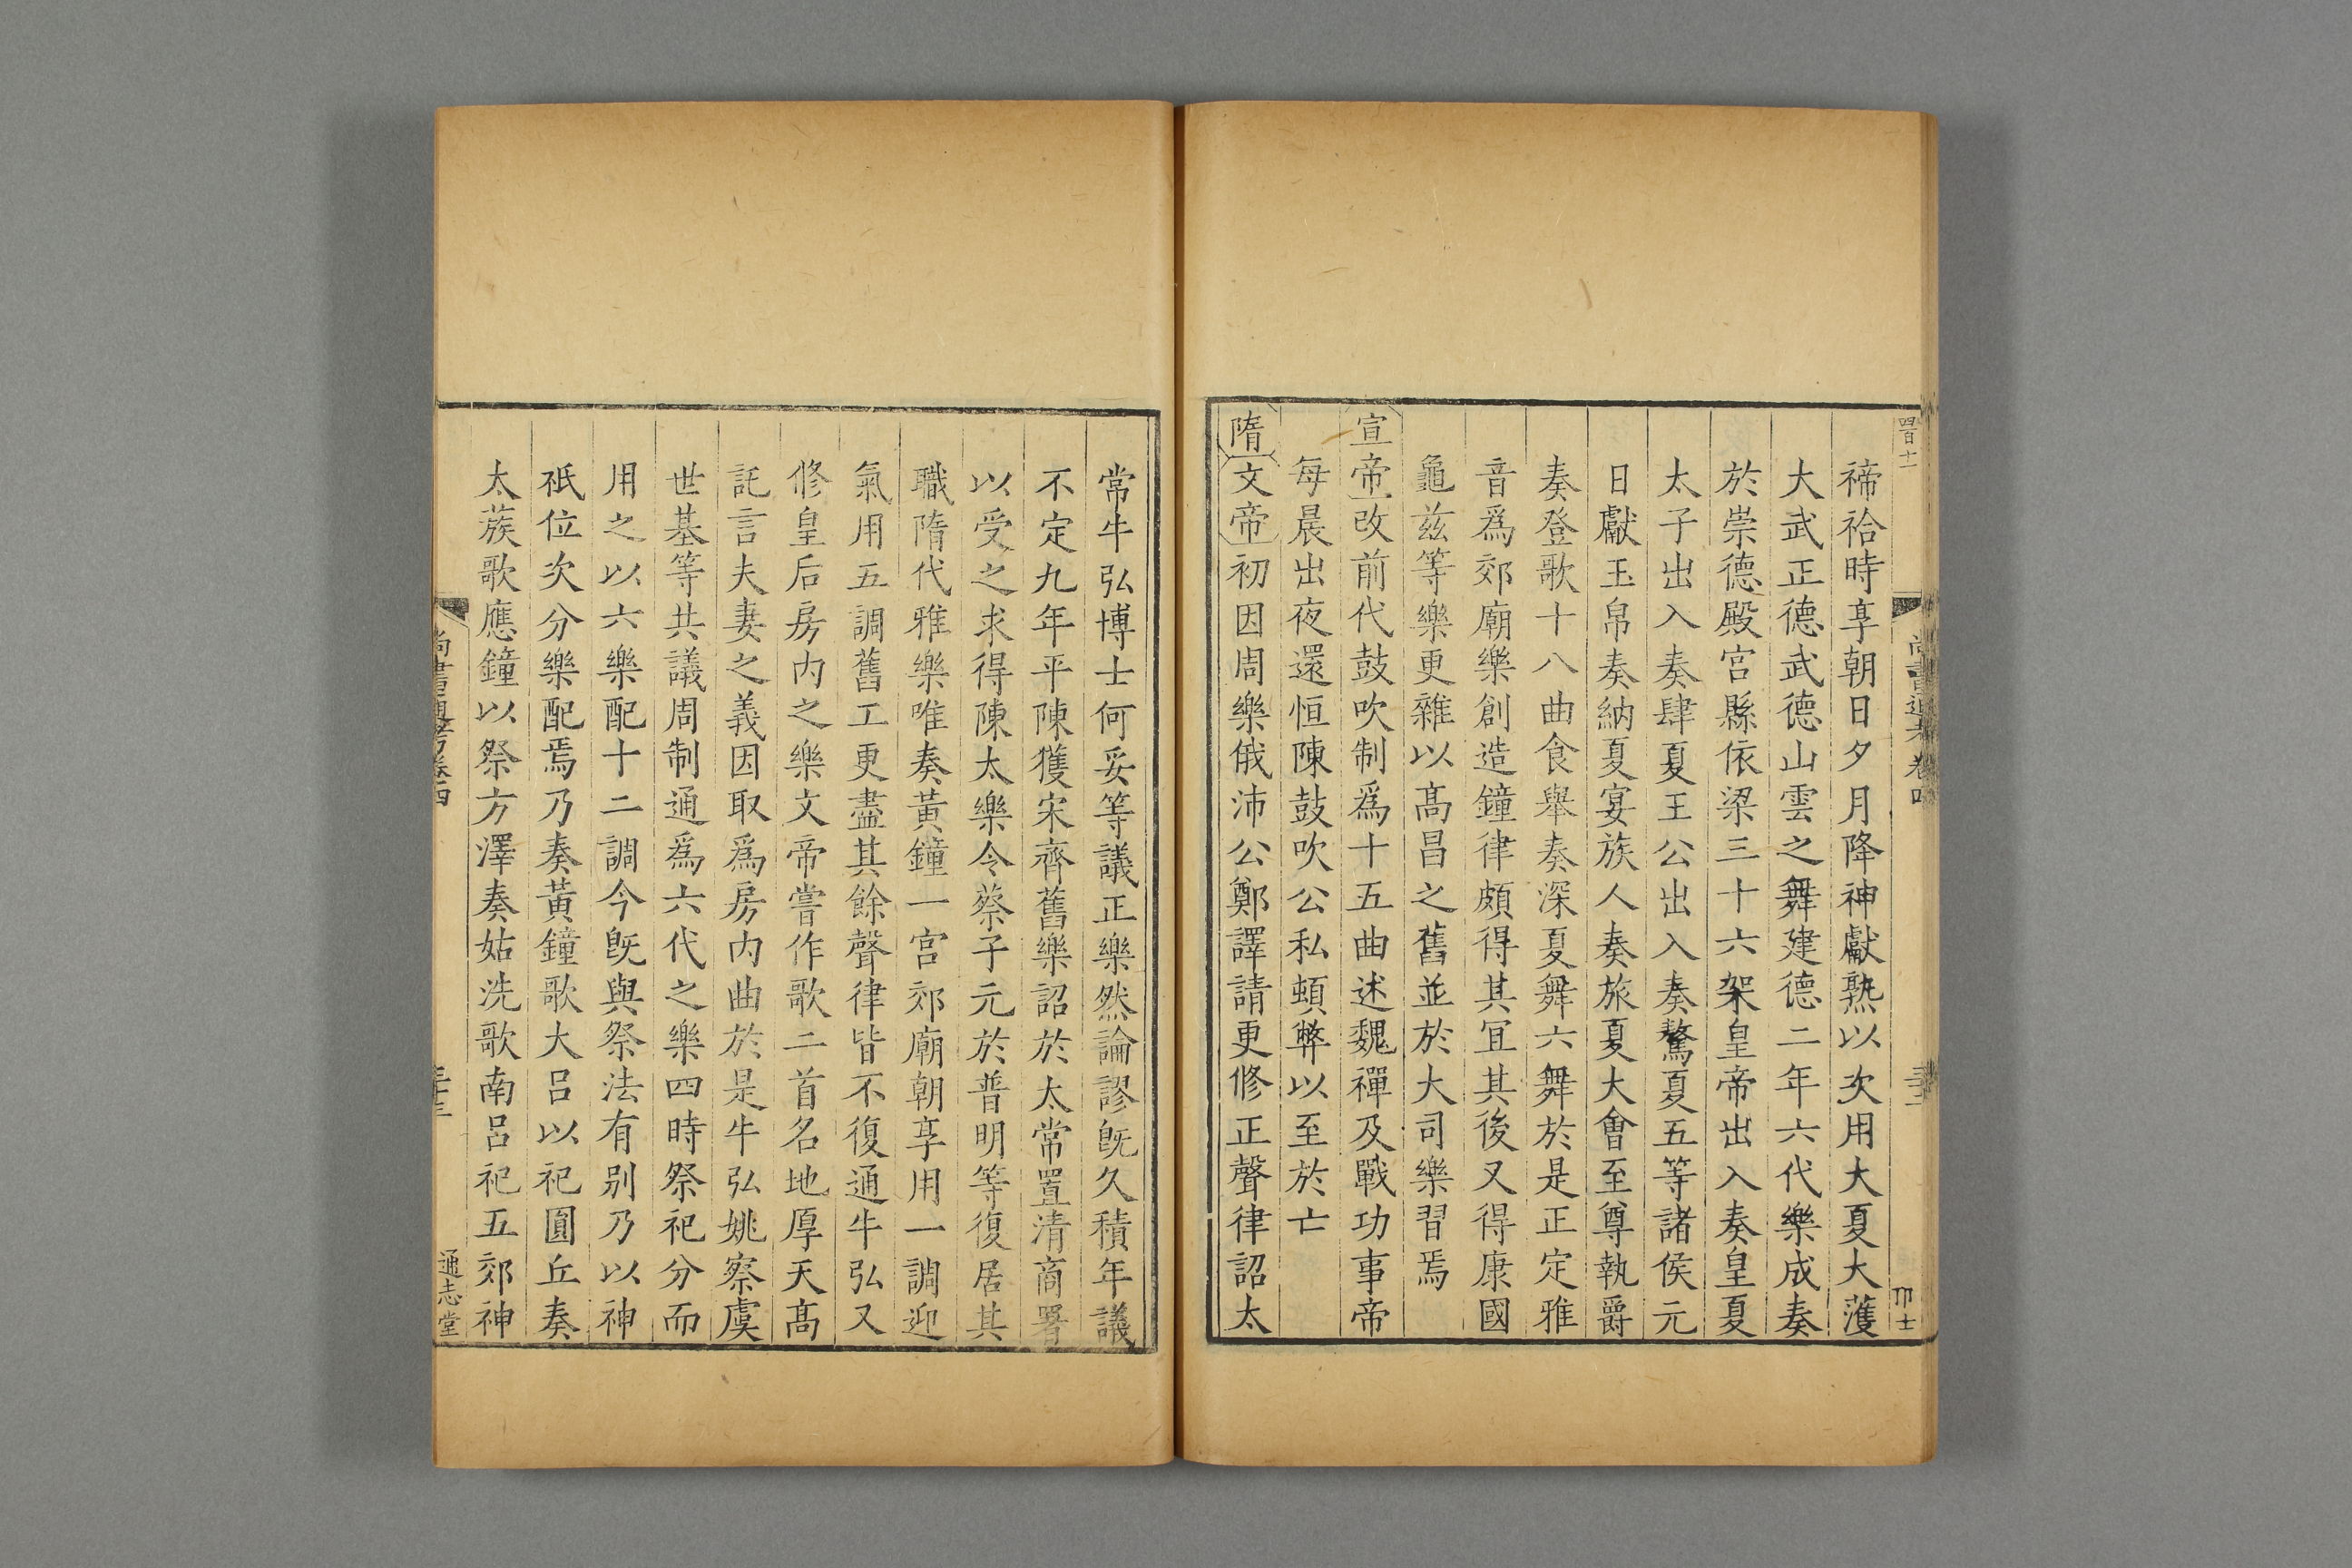 禘祫時享朝日夕月降神獻熟以次用大夏大濩
大武正德武德山雲之舞建德二年六代樂成奏
於崇德殿宮縣依梁三十六架皇帝出入奏皇夏
太子出入奏肆夏王公出入奏驁夏五等諸侯元
日獻玉帛奏納夏宴族人奏族夏大會至尊執爵
奏登歌十八曲食舉奏深夏舞六舞於是正定雅
音爲郊廟樂創造鐘律頗得其冝其後又得康國
龜兹等樂更雜以髙昌之舊並於大司樂習焉
宣帝改前代鼓吹制爲十五曲述魏禪及戰功事帝
每晨出夜還恒陳鼓吹公私頓弊以至於亡
隋文帝初因周樂俄沛公鄭譯請更修正聲律詔太
常牛弘博士何妥等議正樂然論謬旣久積年議
不定九年平陳獲宋齊舊樂詔於太常置清商署
以受之求得陳太樂令蔡子元於普明等復居其
職隋代雅樂唯奏黃鐘一宫郊廟朝享用一調迎
氣用五調舊工更盡其餘聲律皆不復通牛弘又
修皇后房内之樂文帝嘗作歌二首名地厚天髙
託言夫妻之義因取爲房内曲於是牛弘姚察虞
世基等共議周制通爲六代之樂四時祭祀分而
用之以六樂配十二調今旣與祭法有别乃以神
祇位次分樂配焉乃奏黃鐘歌大呂以祀圓丘奏
太蔟歌應鐘以祭方澤奏姑洗歌南呂祀五郊神
尚書通考卷四
通志堂